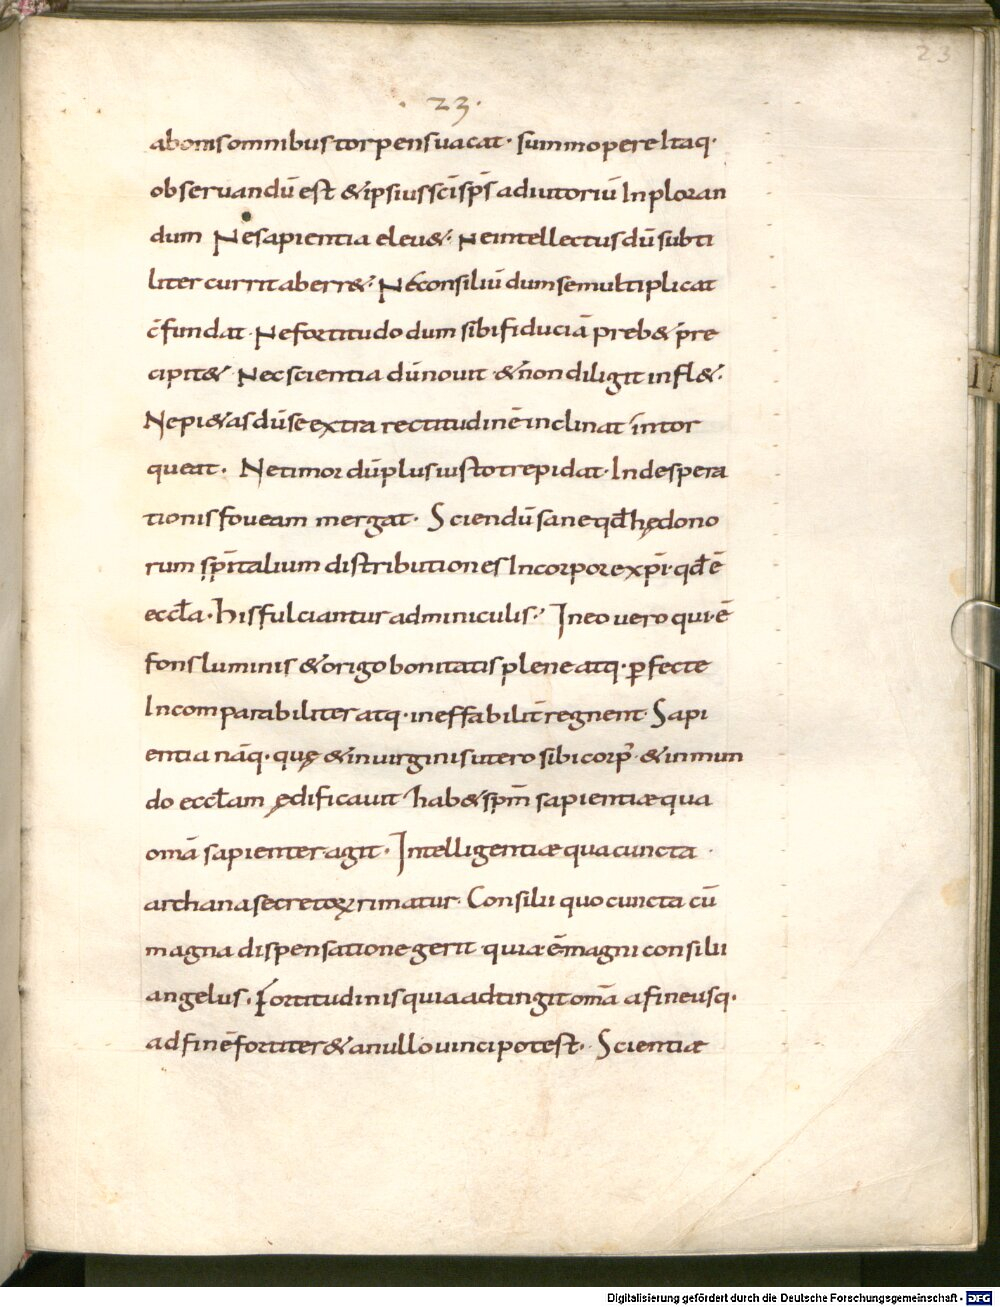 23
· 23 ·
abonis omnibus torpens uacat · summopere Itaq ·
obseruandū est & ipsius sc̄i sp̄s adiutoriū Inploran
dum Ne sapientia eleu& · Ne intellectus dū subti
liter currit aberr& · Ne consiliū dum se multiplicat
c̄fundat · Ne fortitudo dum sibi fiduciā preb& p̄re
cipit& Nec scientia dū nouit & non diligit infl& ·
Ne pi&as dū se extra rectitudinē inclinat intor
queat · Ne timor dū plus iusto trepidat · In despera
tionis foueam mergat · Sciendū sane qd̄ hę dono
rum sp̄italium distributiones In corpore xp̄i · qd̄ ē
eccl̄a · his fulciantur adminiculis · In eo uero qui · ē
fons luminis & origo bonitatis plene atq · ꝑfecte
Incomparabiliter atq · ineffabilit̄ regnent · Sapi
entia nāq · quę & in uirginis utero sibi corp᾽ & in mun
do eccl̄am ędificauit hab& sp̄m sapientiæ qua
om̄a sapienter agit · Intelligentiæ qua cuncta ·
archana secretoꝝ rimatur · Consilii quo cuncta cū
magna dispensatione gerit quia ē magni consilii
angelus · Fortitudinis quia adtingit om̄a a fine usq ·
ad finē fortiter & a nullo uinci potest · Scientiæ
II
Digitalisierung gefördert durch die Deutsche Forschungsgemeinschaft - DFG